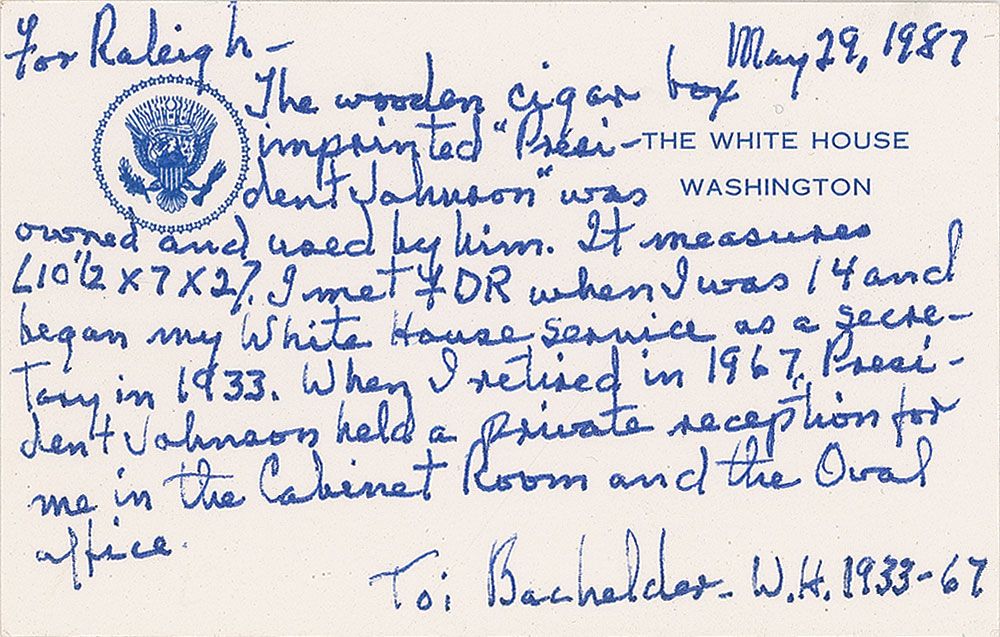 For Raleigh-
May 29, 1987
The wooden cigar box
imprinted "Presi-
THE WHITE HOUSE
dent Johnson" was
WASHINGTON
owned and used by him. It measures
10 1/2 x 7 x 2 1/2. I met FDR when I was 14 and
began my White House service as a secre-
tary in 1933. When I retired in 1967, Presi-
dent Johnson held a private reception for
me in the Cabinet Room and the Oval
office.
Toi Bachelder- W.H. 1933-67